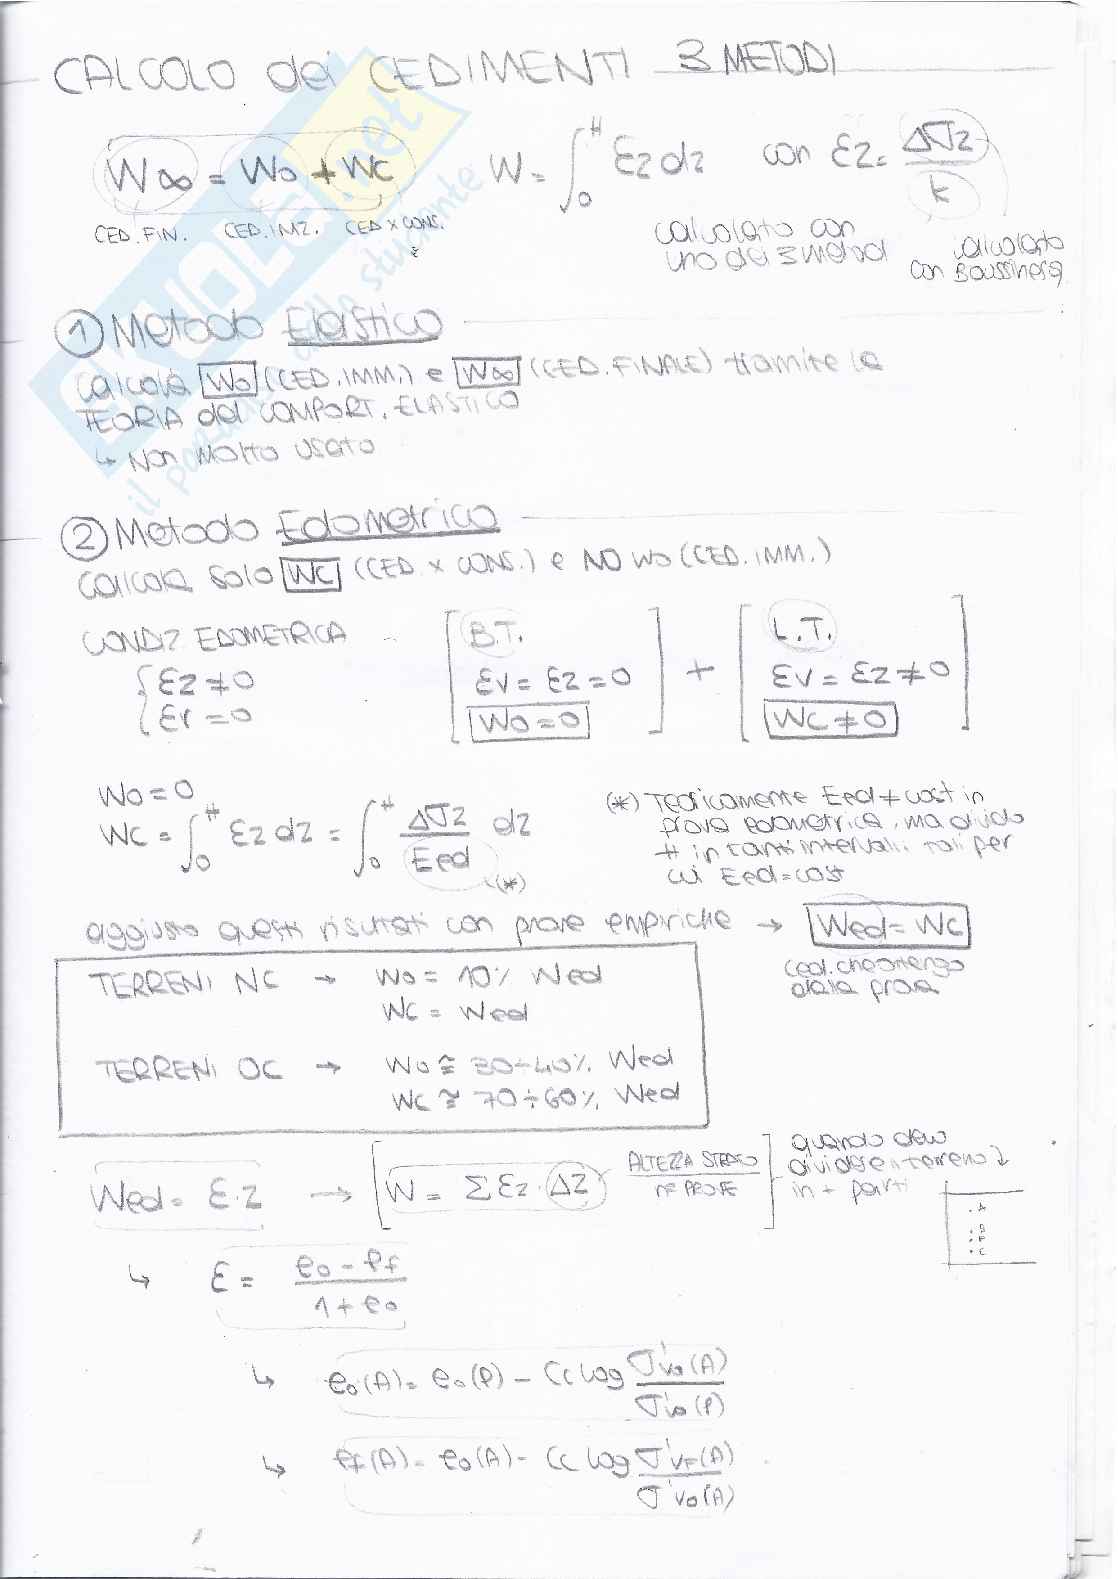 CALCOLO dei CEDIMENTI 3 METODI
W∞ = Wo + Wc W = ∫₀ᴴ εz dz con εz = Δσz / k
CED. FIN. CED. IMZ. CED x CONS.
calcolato con uno dei 3 metodi
calcolato con Baussinesq
① Metodo Elastico
Calcola Wo (CED. IMM.) e W∞ (CED. FINALE) tramite la
TEORIA del COMPORT. ELASTICO
↳ Non molto usato
② Metodo Edometrico
Calcola solo Wc (CED. x CONS.) e NO Wo (CED. IMM.)
CONDIZ EDOMETRICA
εz ≠ 0
εr = 0
[B.T. εv = εz = 0 Wo = 0] + [L.T. εv = εz ≠ 0 Wc ≠ 0]
Wo = 0
Wc = ∫₀ᴴ εz dz = ∫₀ᴴ Δσz / Eed dz
(*)
(*) Teoricamente Eed ≠ cost in
prova edometrica, ma divido
H in tanti intervalli tali per
cui Eed = cost
aggiusto questi risultati con prove empiriche → Wed = Wc
ced. che ottengo
dalla prova
TERRENI NC → Wo = 10% Wed
Wc = Wed
TERRENI OC → Wo ≅ 30÷40% Wed
Wc ≅ 70÷60% Wed
Wed = ε·z → [W = Σ εz · Δz ALTEZZA STRATO / N° PROFF]
quando devo
dividere il terreno
in + parti
. A
. B
. P
. C
↳ ε = eo - ef / 1 + eo
↳ eo(A) = eo(P) - Cc log σ'vo(A) / σ'vo(P)
↳ ef(A) = eo(A) - Cc log σ'vf(A) / σ'vo(A)